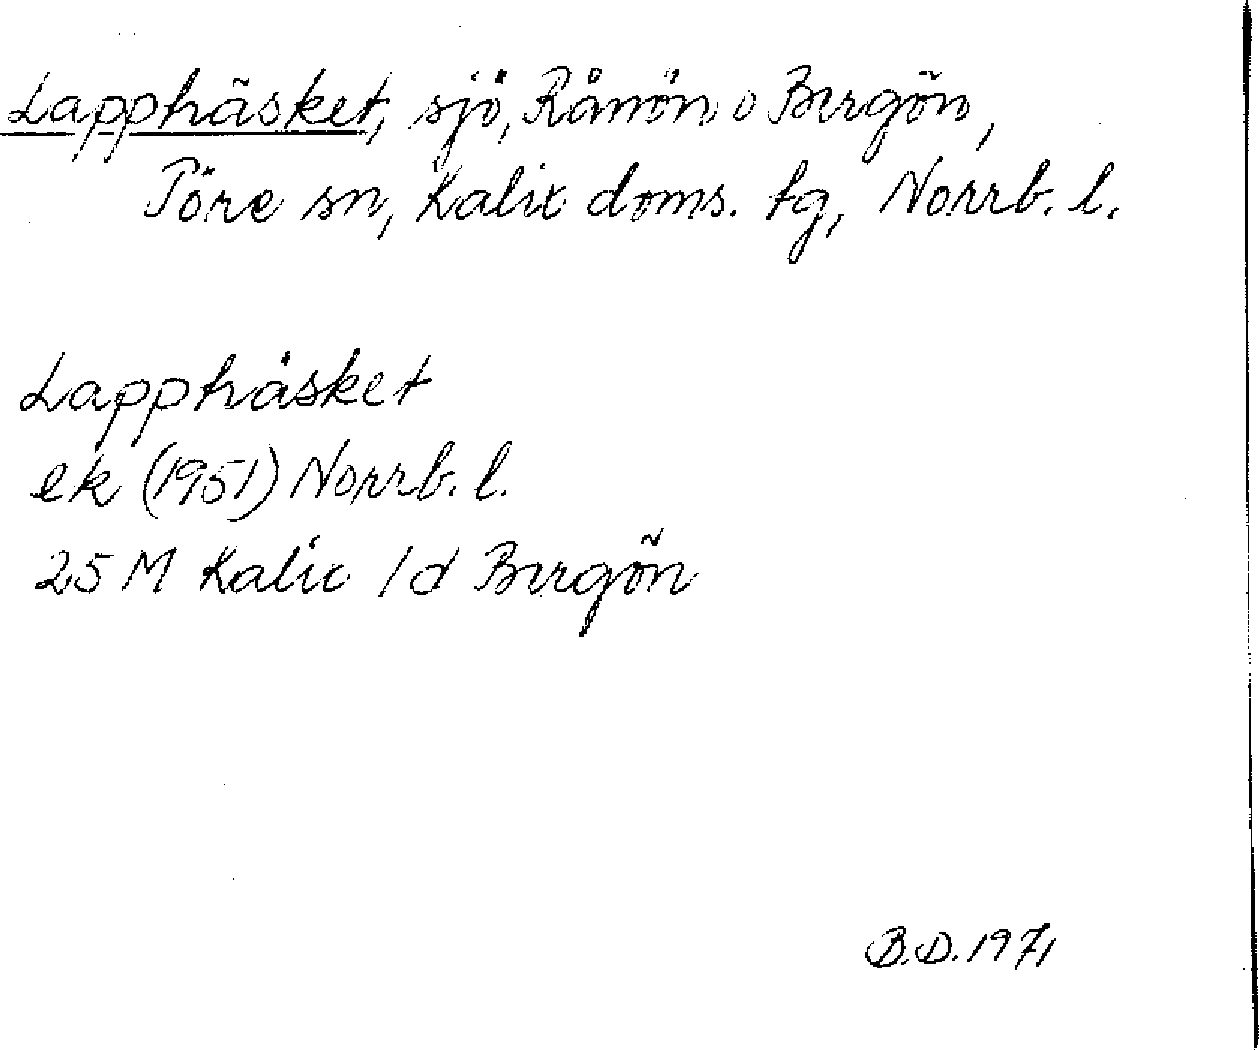 Lapphäsket, sjö, Rånön o Bergön,
Töre sn, Kalix doms. tg, Norrb. l.
Lapphäsket
ek (1951) Norrb. l.
25 M Kalix 1d Bergön
B.D. 1971